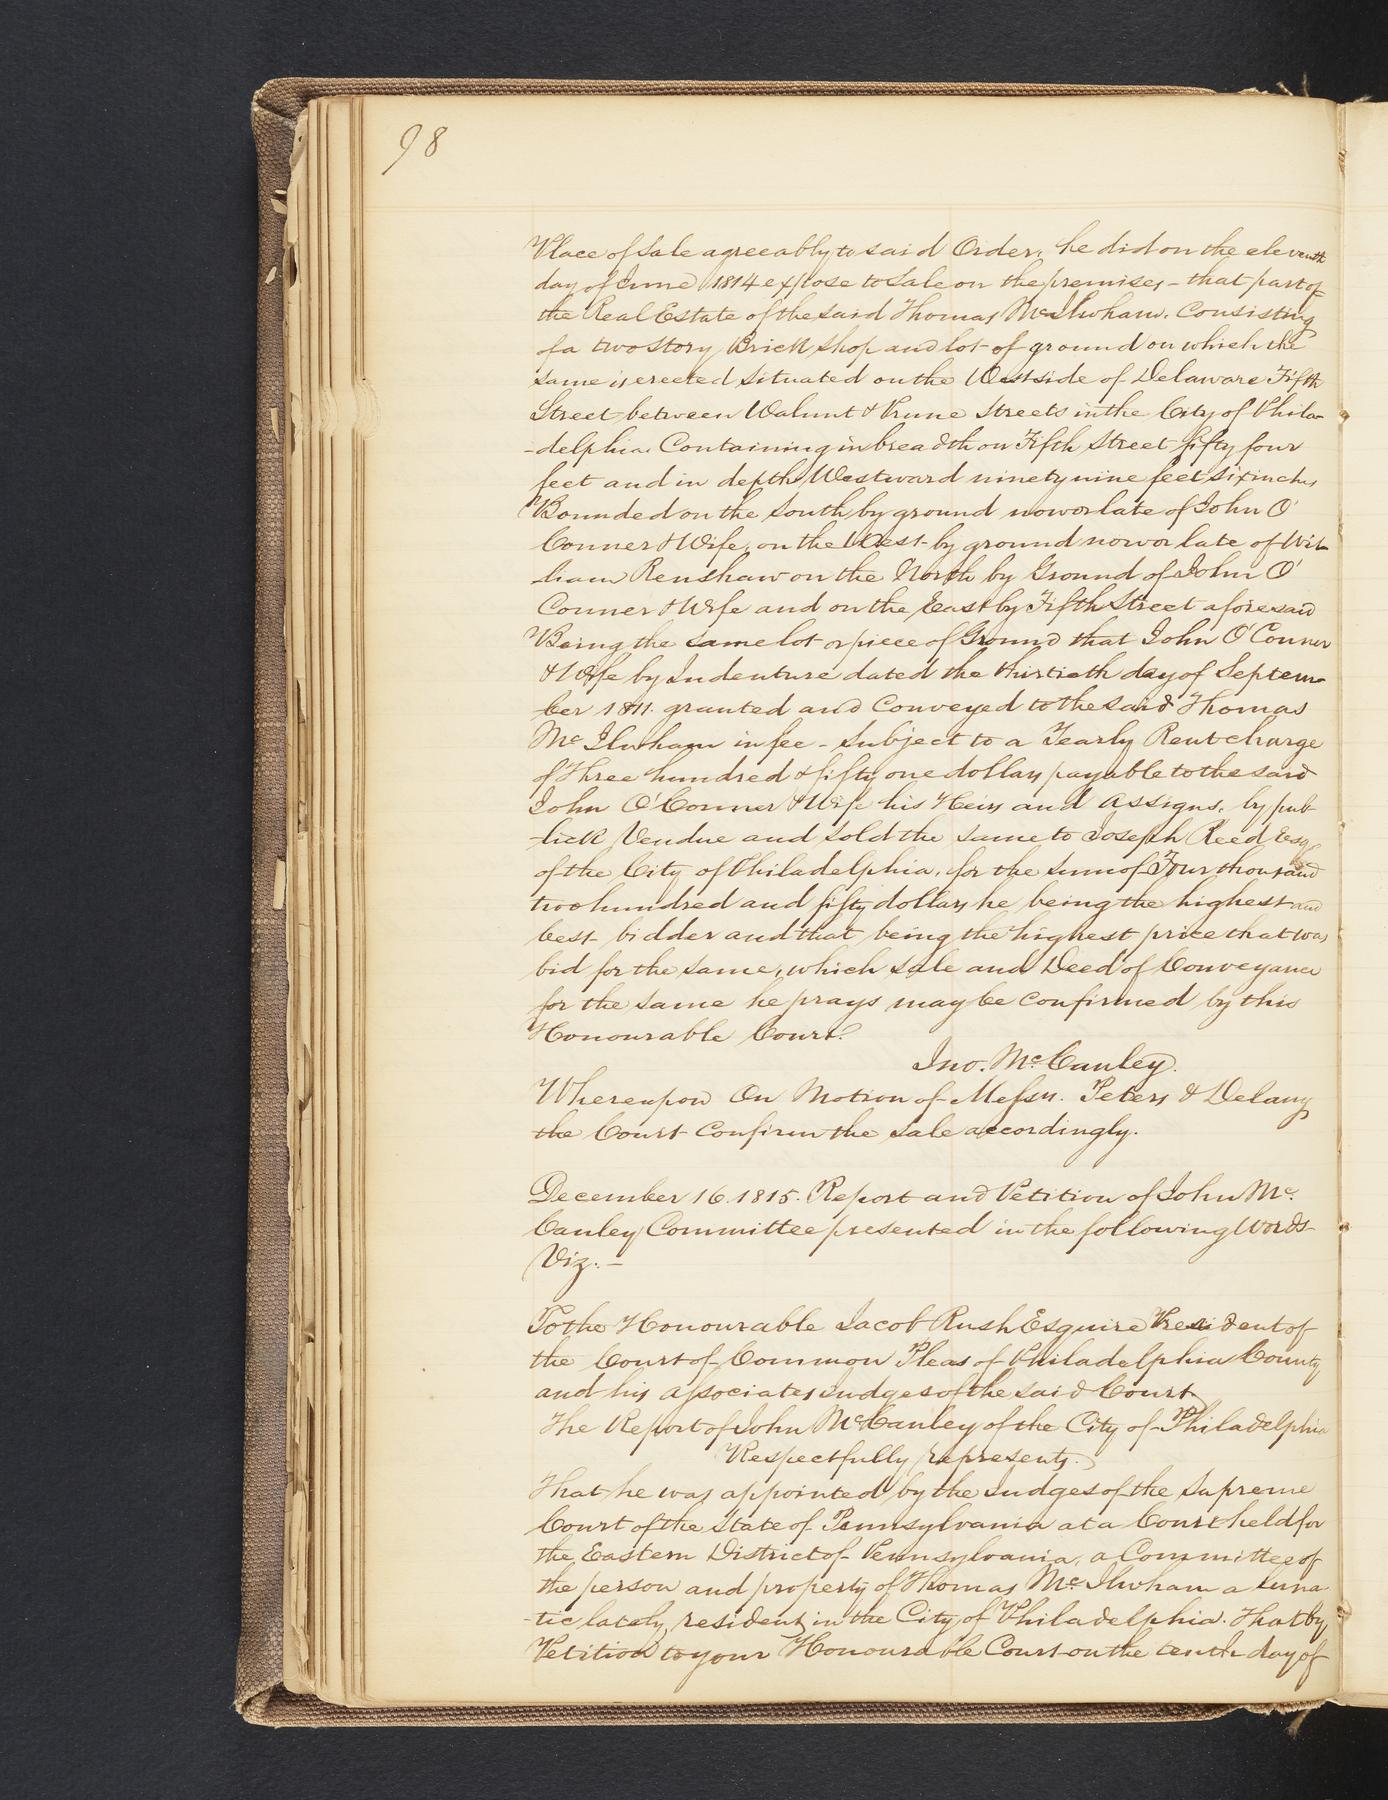 98
Place of Sale agreeably to said Order, he did on the eleventh
day of June 1814 expose to Sale on the premises - that part of
the Real Estate of the said Thomas McIlwham. Consisting
of a two Story Brick Shop and lot of ground on which the
same is erected situated on the West side of Delaware Fifth
Street between Walnut & Prune Streets in the City of Phila-
-delphia. Containing in breadth on Fifth Street fifty four
feet and in depth Westward ninety nine feet six inches
Bounded on the South by ground now or late of John O'
Conner & Wife, on the West by ground now or late of Wil-
liam Renshaw on the North by Ground of John O'
Conner & Wife and on the East by Fifth Street aforesaid
Being the same lot or piece of Ground that John O'Conner
& Wife by Indenture dated the thirtieth day of Septem-
ber 1811. granted and Conveyed to the said Thomas
Mc Ilwham in fee - Subject to a Yearly Rent charge
of Three hundred & fifty one dollars payable to the said
John O'Conner & Wife his Heirs and Assigns, by pub
lick Vendue and Sold the same to Joseph Reed Esq
of the City of Philadelphia, for the sum of Four thousand
two hundred and fifty dollars he being the highest and
best bidder and that being the highest price that was
bid for the same, which sale and Deed of Conveyance
for the same he prays may be confirmed by this
Honourable Court.
Jno. McCauley.
Whereupon On Motion of Messrs. Peters & Delany
the Court Confirm the sale accordingly.
December 16. 1815. Report and Petition of John Mc.
Cauley Committee presented in the following Words
Viz. -
To the Honourable Jacob Rush Esquire President of
the Court of Common Pleas of Philadelphia County
and his associates Judges of the said Court.
The Report of John McCauley of the City of Philadelphia
Respectfully represents.
That he was appointed by the Judges of the Supreme
Court of the State of Pennsylvania at a Court held for
the Eastern District of Pennsylvania, a Committee of
the person and property of Thomas Mc Ilwham a luna
-tic lately resident in the City of Philadelphia. That by
Petition to your Honourable Court on the tenth day of